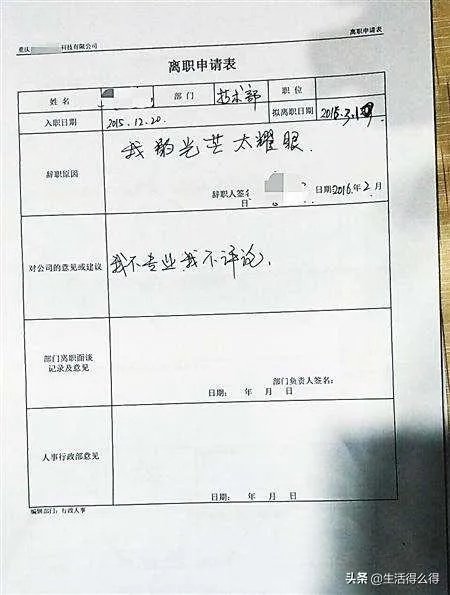 重庆 科技有限公司 离职申请表
离职申请表
姓名 部门 技术部 职位
入职日期 2015.12.20 拟离职日期
我的光芒太耀眼.
辞职原因
辞职人签名 日期2016年2月
日
对公司的意见或建议 我不专业,我不评论.
部门离职面谈
记录及意见
部门负责人签名:
日期: 年 月 日
人事行政部意见
日期: 年 月 日
编制部门:行政人事
头条 @生活得么得